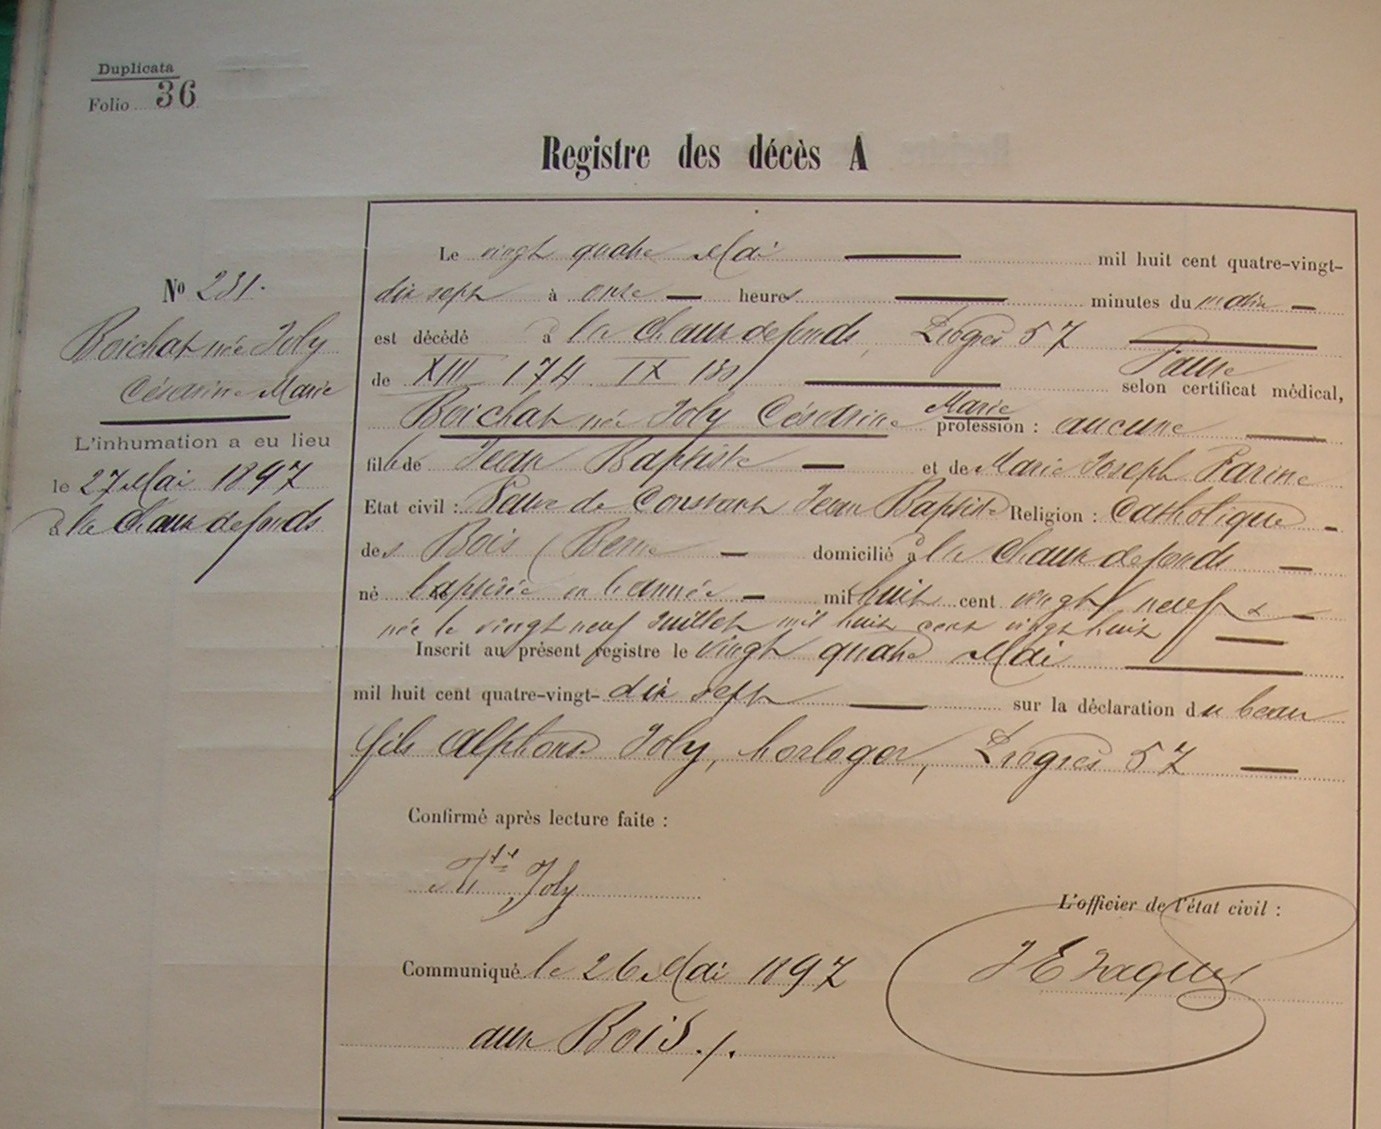 Duplicata
Folio 36
Registre des décès A
Nº 231.
Boichat née Joly
Césarine Marie
L'inhumation a eu lieu
le 27 Mai 1897
à la Chaux de fonds
Le vingt quatre Mai mil huit cent quatre-vingt-
dix sept à onze heures minutes du matin
est décédé à la Chaux de fonds, Progrès 57
de XIII 174 IX selon certificat médical,
Boichat née Joly Césarine Marie profession : aucune
fille de Jean Baptiste et de Marie Joseph Farine
Etat civil : Veuve de Constant Jean Baptiste Religion : Catholique
des Bois (Berne domicilié à la Chaux de fonds
né baptisée en l'année mil huit cent vingt neuf
née le vingt neuf Juillet mil huit cent vingt huit
Inscrit au présent registre le vingt quatre Mai
mil huit cent quatre-vingt- dix sept sur la déclaration du beau
fils Alphonse Joly, horloger, Progrès 57
Confirmé après lecture faite :
Joly
L'officier de l'état civil :
Communiqué le 26 Mai 1897
aux Bois ./.